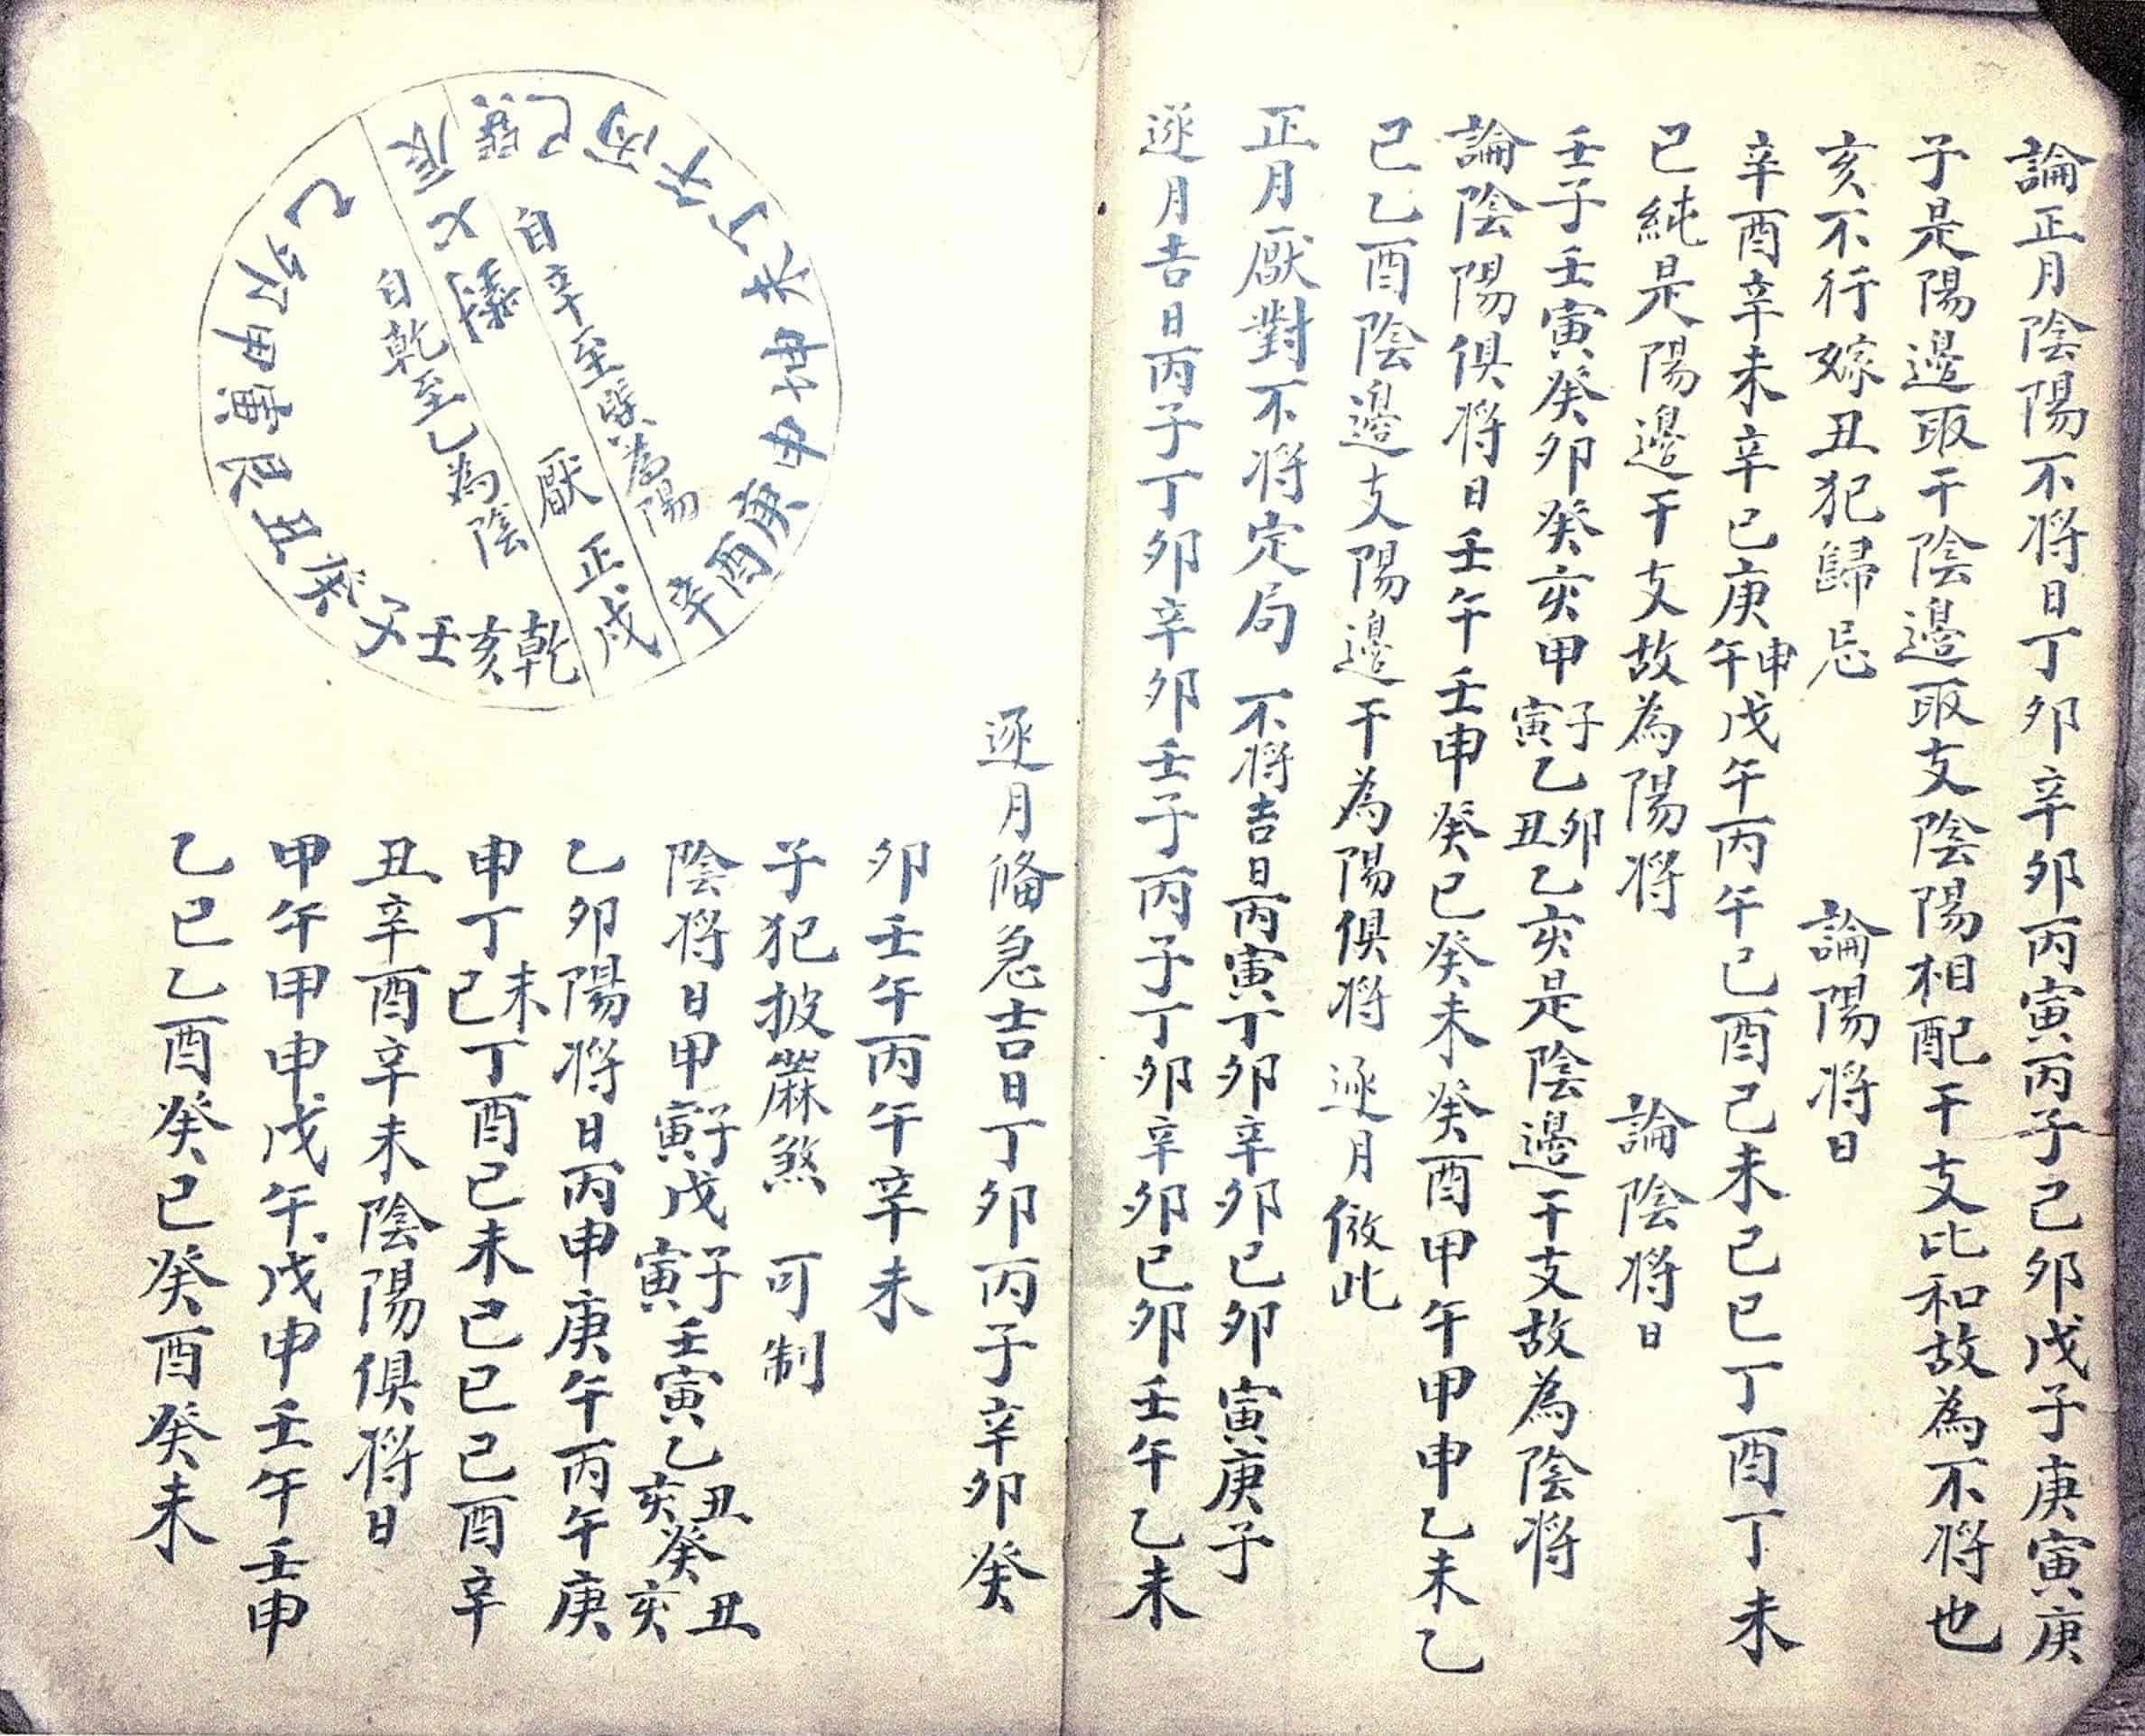 論正月陰陽不將日丁卯辛卯丙寅丙子己卯戊子庚寅庚
子是陽邊取干陰邊取支陰陽相配干支比和故為不將也
亥不行嫁丑犯歸忌
論陽將日
辛酉辛未辛巳庚午申戊午丙午己酉己未己巳丁酉丁未
巳純是陽邊干支故為陽將
論陰將日
壬子壬寅癸卯癸亥甲寅子乙丑卯乙亥是陰邊干支故為陰將
論陰陽俱將日壬午壬申癸巳癸未癸酉甲午甲申乙未乙
巳乙酉陰邊支陽邊干為陽俱將 逐月倣此
正月厭對不將定局 不將吉日丙寅丁卯辛卯己卯寅庚子
逐月吉日丙子丁卯辛卯壬子丙子丁卯辛卯己卯壬午乙未
辰
巽巳丙午丁未坤申庚酉辛
戌
乾亥壬子癸丑艮寅甲卯乙
自辛至巽為陽
厭正
自乾至乙為陰
逐月俻急吉日丁卯丙子辛卯癸
卯壬午丙午辛未
子犯披蔴煞 可制
陰將日甲寅子戊寅子壬寅乙亥丑癸亥丑
乙卯陽將日丙申庚午丙午庚
申丁巳未丁酉己未己巳己酉辛
丑辛酉辛未陰陽俱將日
甲午甲申戊午戊申壬午壬申
乙巳乙酉癸巳癸酉癸未